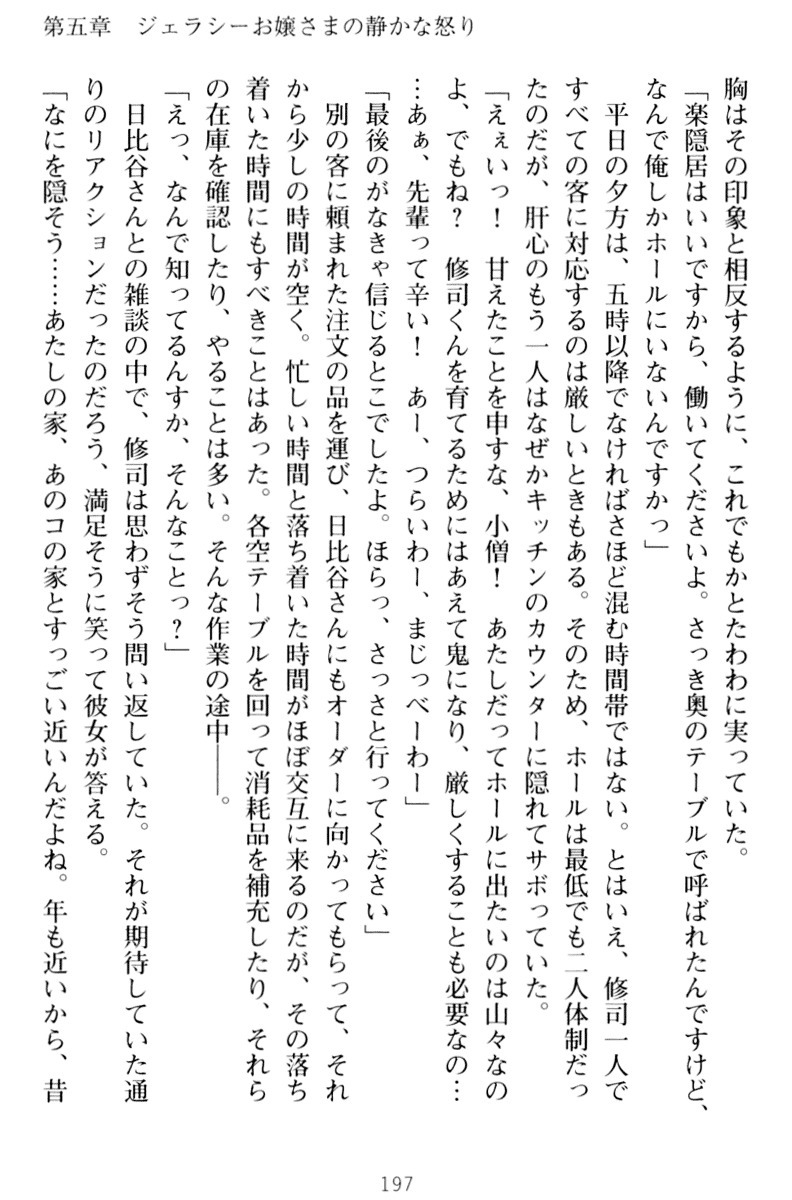 第五章　ジェラシーお嬢さまの静かな怒り
胸はその印象と相反するように、これでもかとたわわに実っていた。
「楽隠居はいいですから、働いてくださいよ。さっき奥のテーブルで呼ばれたんですけど、
なんで俺しかホールにいないんですかっ」
　平日の夕方は、五時以降でなければさほど混む時間帯ではない。とはいえ、修司一人で
すべての客に対応するのは厳しいときもある。そのため、ホールは最低でも二人体制だっ
たのだが、肝心のもう一人はなぜかキッチンのカウンターに隠れてサボっていた。
「えぇいっ！　甘えたことを申すな、小僧！　あたしだってホールに出たいのは山々なの
よ、でもね？　修司くんを育てるためにはあえて鬼になり、厳しくすることも必要なの…
…あぁ、先輩って辛い！　あー、つらいわー、まじっべーわー」
「最後のがなきゃ信じるとこでしたよ。ほらっ、さっさと行ってください」
　別の客に頼まれた注文の品を運び、日比谷さんにもオーダーに向かってもらって、それ
から少しの時間が空く。忙しい時間と落ち着いた時間がほぼ交互に来るのだが、その落ち
着いた時間にもすべきことはあった。各空テーブルを回って消耗品を補充したり、それら
の在庫を確認したり、やることは多い。そんな作業の途中――。
「えっ、なんで知ってるんすか、そんなことっ？」
　日比谷さんとの雑談の中で、修司は思わずそう問い返していた。それが期待していた通
りのリアクションだったのだろう、満足そうに笑って彼女が答える。
「なにを隠そう……あたしの家、あのコの家とすっごい近いんだよね。年も近いから、昔
197